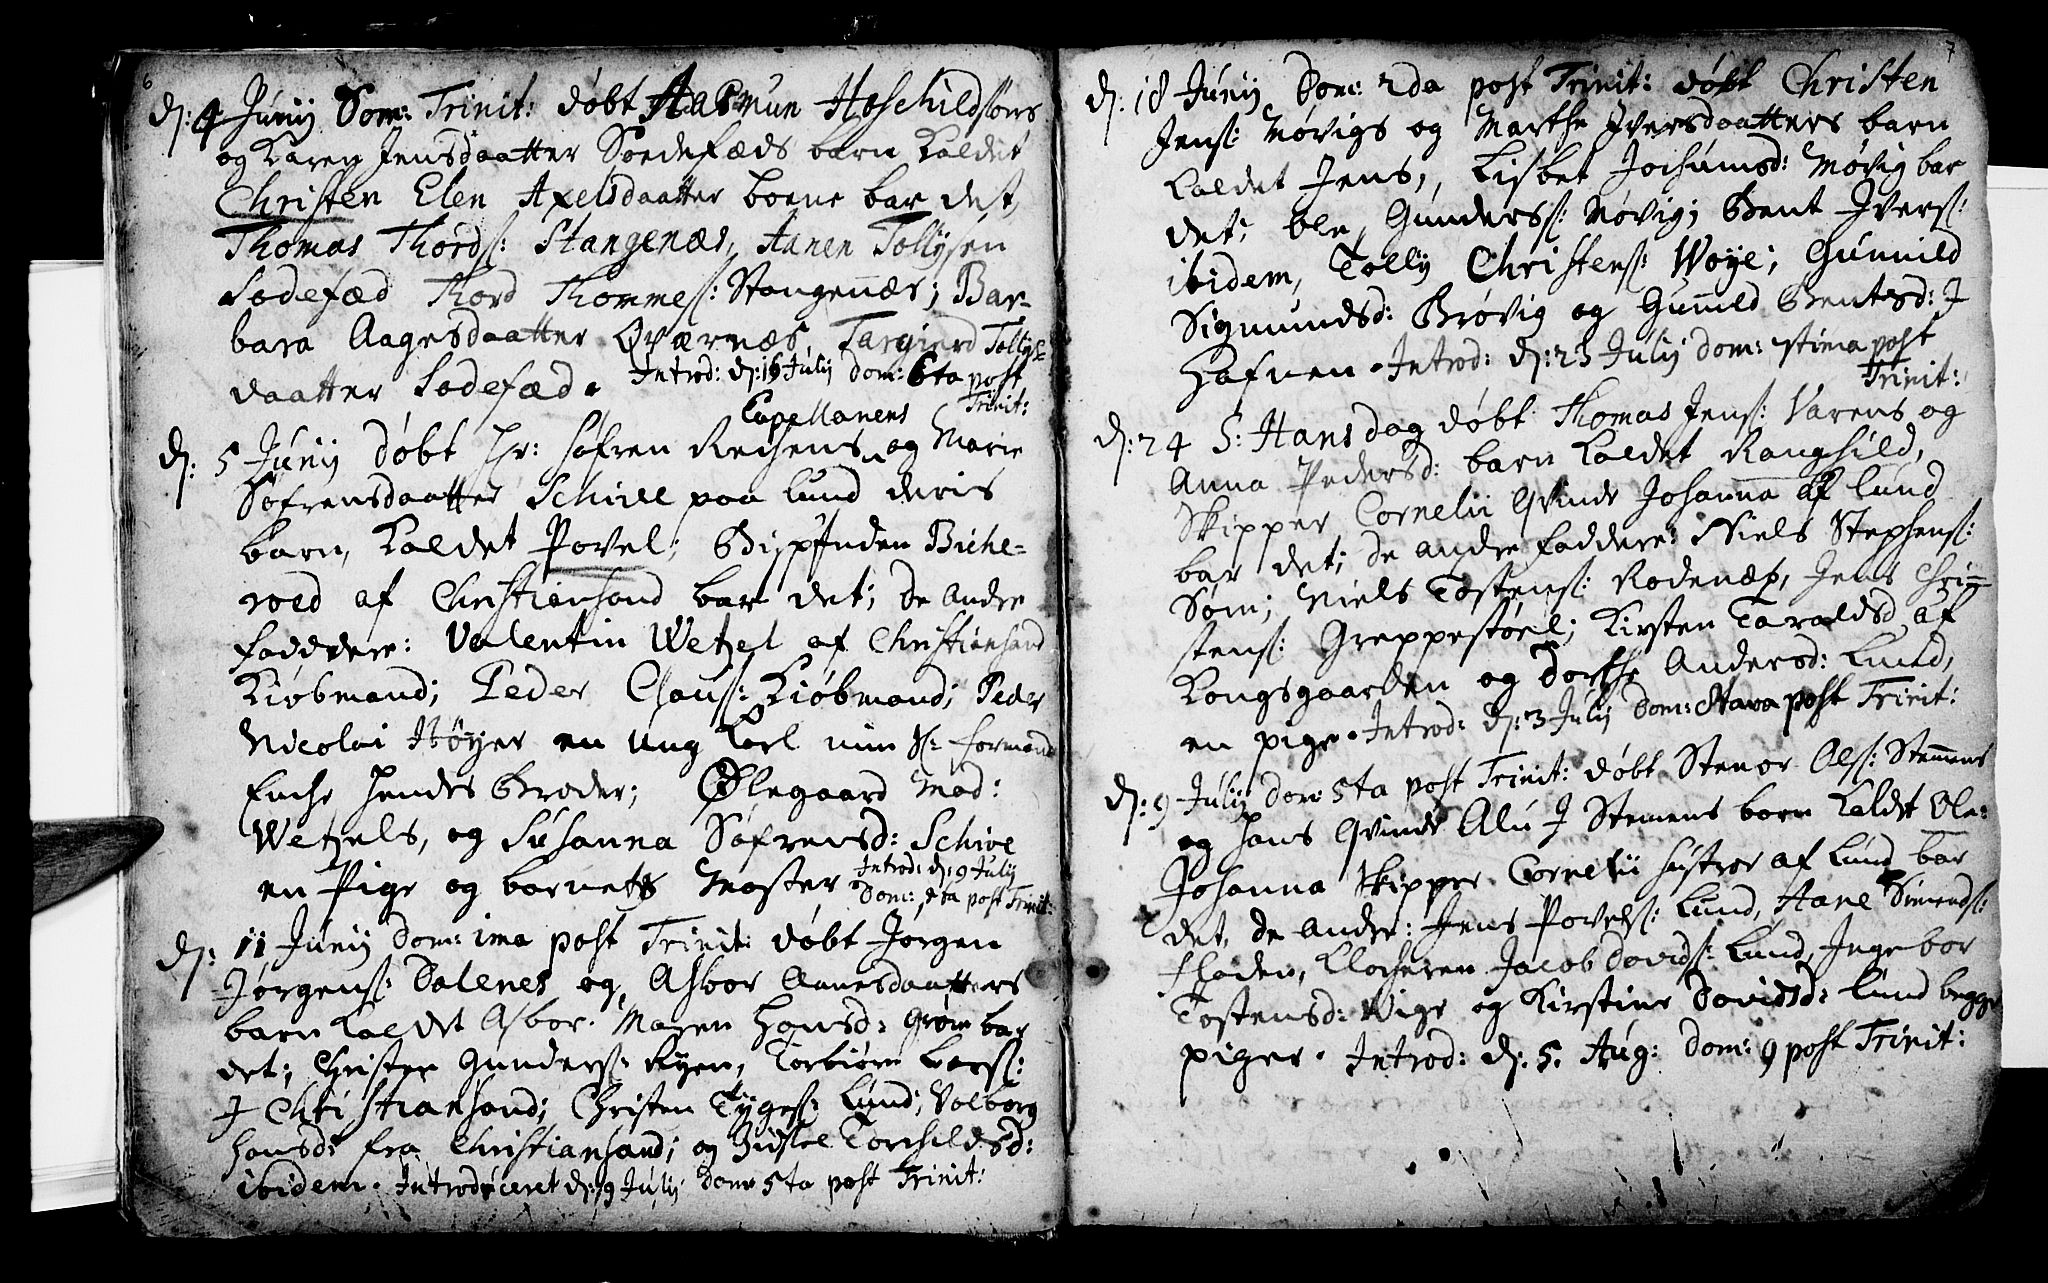 6
d: 4 Junij Dom: Trinit: døbt Aasmun Hoschildsøns
og Karen Jensdaatter Sodefæds barn kaldet
Christen Elen Axelsdaatter boene bar det,
Thomas Thords: Stangenæs, Aanen Tollysen
Sodefæd Thord Thommes: Stangenæs; Bar-
bara Aagesdaatter Qværnæs, Targierd Tollys-
daatter Sodefæd. Introd: d: 16 Julij dom: 6ta post
Trinit:
Capellanens
d: 5 Junij døbt Hr: Søfren og Marie
Søfrensdaatter Schive paa Lund deris
barn, kaldet Povel; Bispinden Biche-
rod af Christiansand bar det; de andre
faddere: Valentin Wetzel af Christiansand
Kiøbmand; Peder Claus: Kiøbmand; Peder
Nicolai Høyer en ung Karl min S: formands
Enche hendes Broder; Ølegaard Mad:
Wetzels, og Susanna Søfrensd: Schive
en Pige og barnets Moster Introd: d: 9 Julij
Dom: 5ta post Trinit:
d: 11 Junij Dom: 1ma post Trinit: døbt Jørgen
Jørgens: Dalenes og Asbor Aanesdaatters
barn kaldet Asbor. Maren Hansd: Grøm bar
det; Christen Gunders: Kyen, Torbiørn Lars:
I Christiansand; Christen Tyges: Lund; Valborg
Hansd: fra Christiansand; og Sidsel Torchildsd:
ibidem. Introduceret d: 9 Julij Dom: 5ta post Trinit:
7
d: 18 Junij Dom: 2da post Trinit: døbt Christen
Jens: Møvigs og Marthe Iversdaatters barn
kaldet Jens,, Lisbet Jochumsd: Møvig bar
det; Ole Gunders: Møvig; Bent Ivers:
ibidem, Tolly Christens: Woye; Gunnild
Sigmundsd: Brøvig og Gunild Bentsd: I
Hafnen. Introd: d: 23 Julij dom: 7tima post
Trinit:
d: 24 S: Hansdag døbt Thomas Jens: Varens og
Anna Pedersd: barn kaldet Ranghild,
Skipper Cornelii Qvinde Johanna af Lund
bar det; de andre faddere: Niels Stephens:
Søm; Niels Tostens: Rodenæs, Jens Chri-
stens: Greppestøel; Kirsten Taraldsd af
Kongsgaarden og Dorthe Andersd: Lund,
en pige. Introd: d: 3 Julij Dom: 8tava post Trinit:
d: 9 Julij Dom: 5ta post Trinit: døbt Stenor Ols: Stemens
og hans Qvinde Alu I Stemens barn kaldet Ole:
Johanna Skipper Cornelii hustroe af Lund bar
det, de andre: Jens Povels: Lund, Aane Simends:
Floden, Klocheren Jacob Davids: Lund, Ingebor
Tostensd: Wige og Kirstine Davidsd: Lund begge
piger. Introd: d: 5. Aug: Dom: 9 post Trinit: